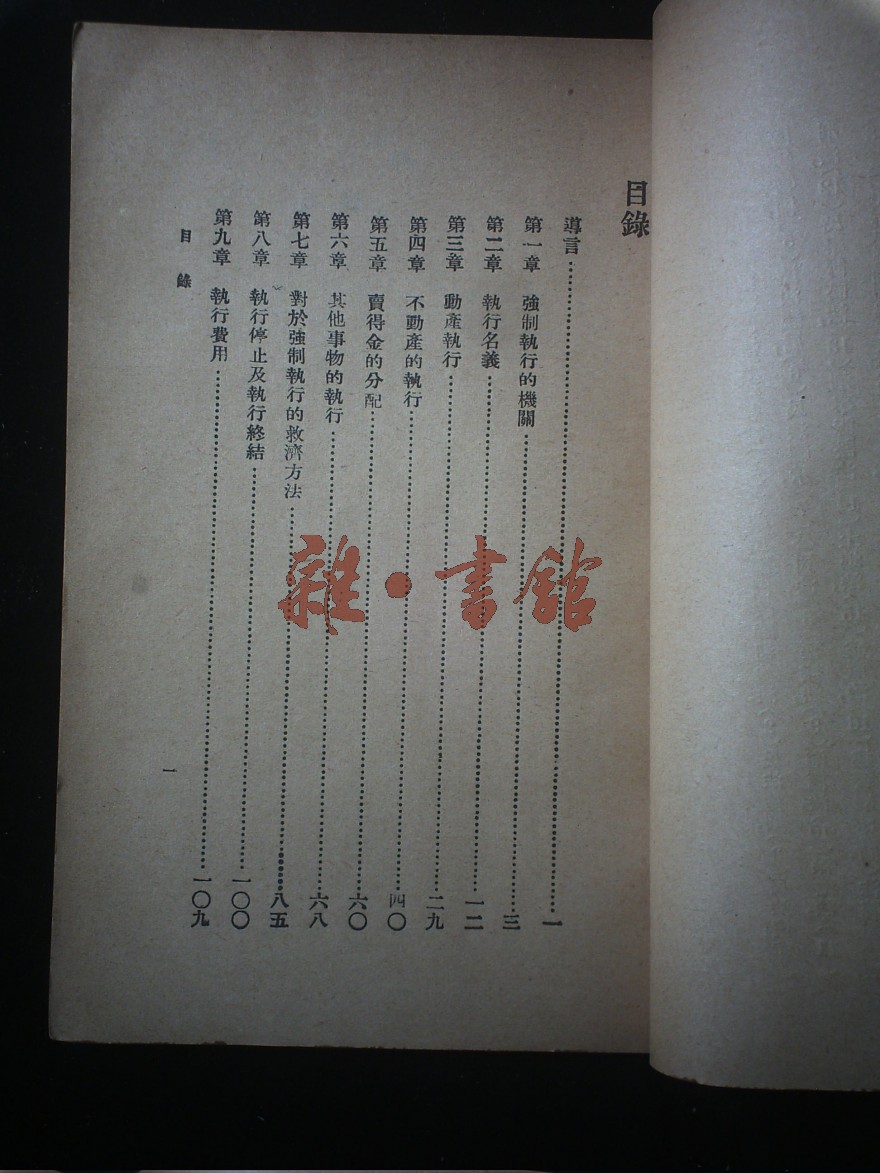 目錄
導言……一
第一章 強制執行的機關……三
第二章 執行名義……一二
第三章 動產執行……二九
第四章 不動產的執行……四〇
第五章 賣得金的分配……六〇
第六章 其他事物的執行……六八
第七章 對於強制執行的救濟方法……八五
第八章 執行停止及執行終結……一〇〇
第九章 執行費用……一〇九
目錄
一
雜·書館